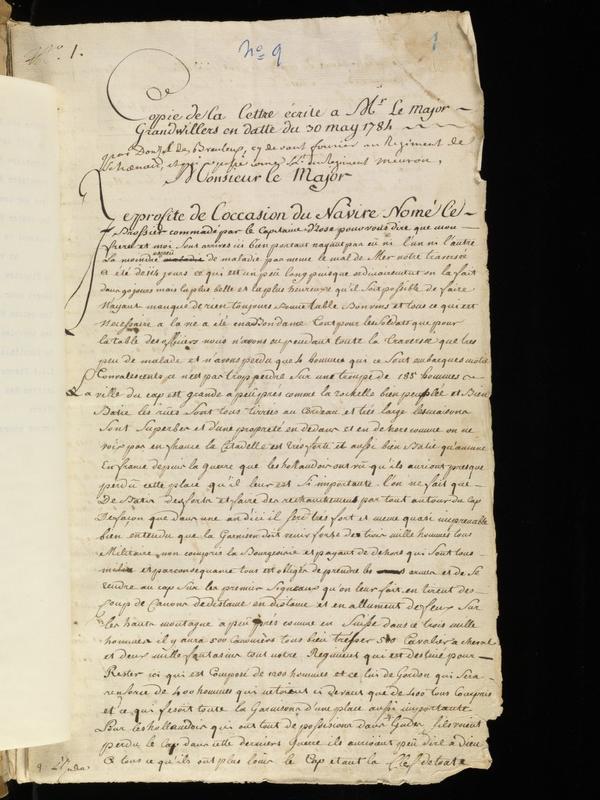 No 1.
No 9
1
Copie de la lettre écrite a Mr Le Major
Grandwillers en datte du 30 may 1784
par de cy devant fourier au Regiment de
du Regiment meuron,
Monsieur le Major
Je profite de l'occasion du Navire Nomé le
commadé par le Capitaine pour vous dire que mon
frere et moi sont arrives ici bien portant nayant pas eu ni l'un ni l'autre
La moindre espece de maladie pas meme le mal de Mer notre traversée
a été de 114 jours ce qui est un peu long puisque ordinairement on la fait
dans 90 jours mais la plus belle et la plus heureuse qu'il soit possible de faire
Nayant manqué de rien toujours bonne table Bon vin et tous ce qui est
Necessaire a la vie a été en abondance tout pour les soldats que pour
la table des officiers nous n'avons eu pendant toute la traversée que tres
peu de malade et n'avons perdu que 4 hommes qui ce sont embarqués
Convalescents ce n'est pas trop perdre sur une troupe de 185 hommes
La ville du cap est grande a peu pres comme la rochelle bien peuplée et Bien
Batie les rües sont tous tirrées au Cordeau et tres large les maisons
sont Superbes et d'une propreté en dedans et en dehors comme on ne
voir pas en france la Citadelle est tres forte et aussi bien Batie qu'aucune
En france depuis la guerre que les hollandois ont vû qu'ils auriont presque
perdu cette place qu'il leur est si importante l'on ne fait que
De Batir des forts et faire des retranchements par tout autour du Cap
De façon que dans une an d'ici il sera tres fort et meme quasi imprenable
bien entendu que la Garnison doit venir forte de trois mille hommes tous
Militaire non compris la Bourgeoisie et payant de dehors qui sont tous
et par consequance tous est obligés de prendre les armes et de se
rendre au cap sur les premier signeaux qu'on leur fait en tirent des
coup de Canons de distance en distance et en allument des feux sur
les hauts montagne a peu près comme en Suisse dans ce trois mille
hommes il y aura 500 Canoniers tous bien 500 Cavalier a cheval
et deux mille fantasins tout notre Regiment qui est destiné pour
Rester ici qui est Composé de 1200 hommes et ce lui de Gordon qui sera
renforcé de 400 hommes qui netoient ci devant que de 400 tous Compris
et ce qui fesoit toute la Garnisons d'une place aussi importante
Pour les hollandois qui ont tout de possessions dans Lindes s'ils vient
perdu le Cap dans cette derniere Guerre ils auriont peu dire adieu
a tous ce qu'ils ont plus loin le Cap etant la Clef de toute